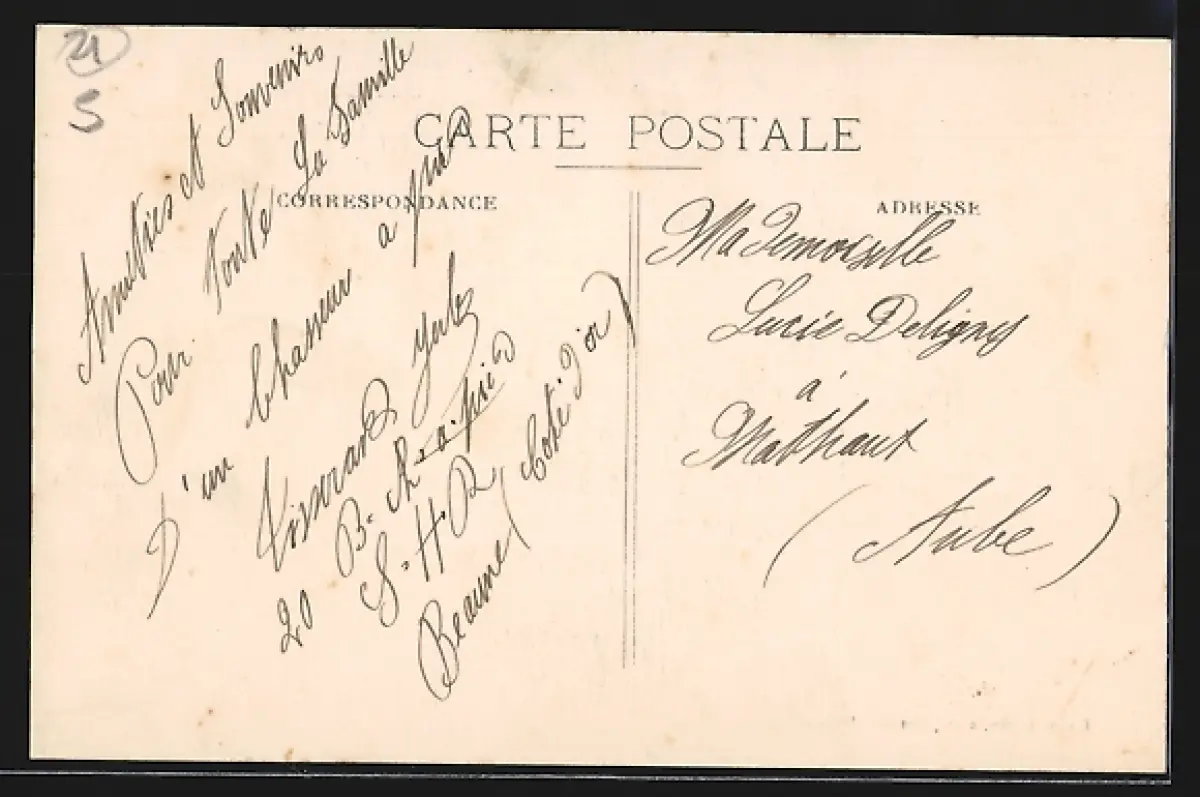 21
S
CARTE POSTALE
CORRESPONDANCE
ADRESSE
Amitiés et Souvenirs
Pour toute La Famille
D'un Chasseur a pied
20 B. Ch. a. pied
S. H. R
Beaune (Côte d'or)
Mademoiselle
Lucie Deligny
à
Mathaux
(Aube)